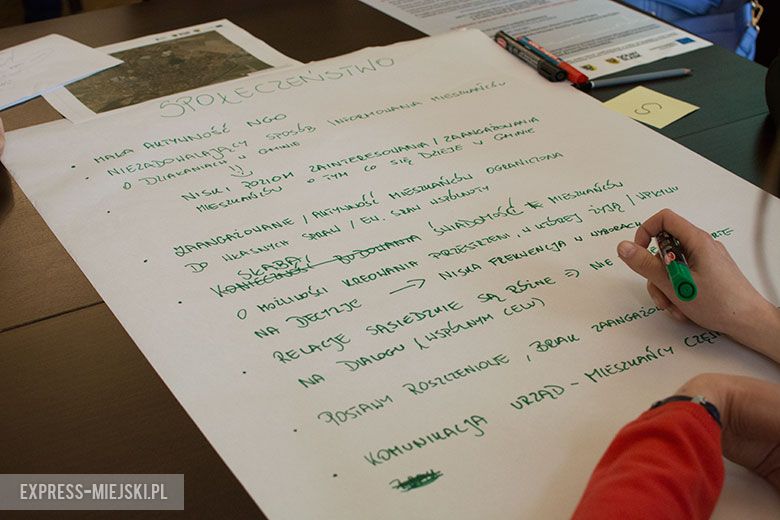 SPOŁECZEŃSTWO
• MAŁA AKTYWNOŚĆ NGO
• NIEZADOWALAJĄCY SPOSÓB INFORMOWANIA MIESZKAŃCÓW
O DZIAŁANIACH W GMINIE
NISKI POZIOM ZAINTERESOWANIA / ZAANGAŻOWANIA
MIESZKAŃCÓW O TYM CO SIĘ DZIEJE W GMINIE
• ZAANGAŻOWANIE / AKTYWNOŚĆ MIESZKAŃCÓW OGRANICZONA
DO WŁASNYCH SPRAW / EW. SPRAW WSPÓLNOTY
SŁABA
• KONIECZNOŚĆ BUDOWANIA ŚWIADOMOŚĆ MIESZKAŃCÓW
O MOŻLIWOŚCI KREOWANIA PRZESTRZENI W KTÓREJ ŻYJĄ / WPŁYWU
NA DECYZJE → NISKA FREKWENCJA W WYBORACH
• RELACJE SĄSIEDZKIE SĄ RÓŻNE ⇒ NIE
NA DIALOGU (WSPÓLNYM CELU)
• POSTAWY ROSZCZENIOWE, BRAK
• KOMUNIKACJA URZĄD - MIESZKAŃCY
S
EXPRESS-MIEJSKI.PL